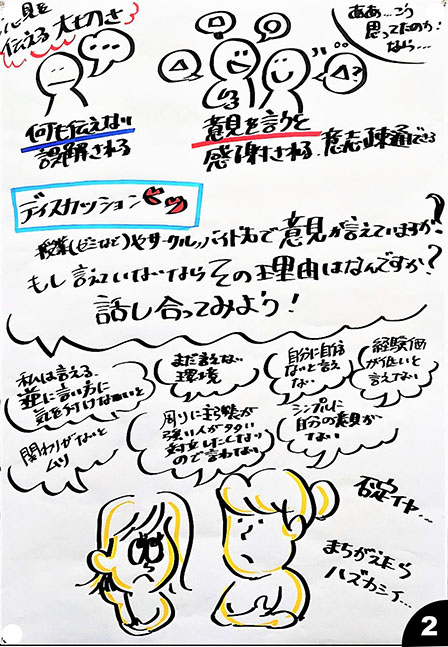 意見を
伝える大切さ
ああ…こう
思ってたのか!
なら…
△?
何も伝えない
誤解される
意見を言うと
感謝される、意志疎通できる
ディスカッション
授業(ゼミなど)やサークル、バイト先で意見が言えていますか?
もし言えていないならその理由はなんですか?
話し合ってみよう!
私は言える、
逆に言い方に
気を付けなきゃいと
まだ言えない
環境
自分に自信
ないと言え
ない
経験価
が低いと
言えない
関わりがないと
ムリ
周りに主張が
強い人が多い
対立したくない
ので言わない
シンプルに
自分の意見が
ない
否定イヤ…
まちがえたら
ハズカシイ…
2